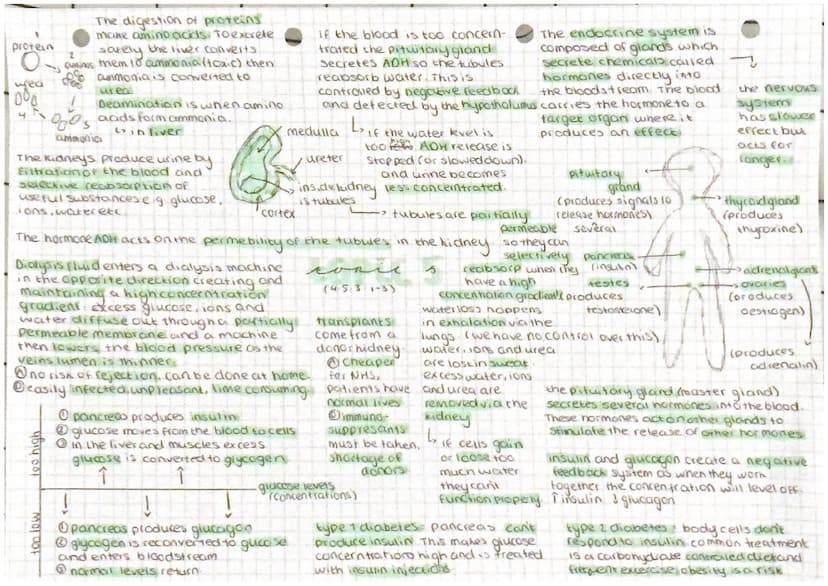 The digestion of proteins
make amino acids. To excrete
safely the liver converts
them to ammonia (toxic) then
ammonia is converted to
urea
Deamination is when amino
acids form ammonia.
↳ in liver
1
protein
2
aminos
urea
4
3
ammonia
The kidneys produce urine by
filtration of the blood and
selective reabsorption of
useful substances e.g. glucose,
ions, water etc.
medulla
ureter
inside kidney
is tubules
cortex
If the blood is too concen-
trated the pituitary gland
secretes ADH so the tubules
reabsorb water. This is
controlled by negative feedback
and detected by the hypothalumus
↳ if the water level is
too high ADH release is
stopped (or slowed down).
and urine becomes
less concentrated.
→ tubules are partially
permeable
so they can
selectively
reabsorb when they
have a high
concentration gradient
The endocrine system is
composed of glands which
secrete chemicals called
hormones directly into
the bloodstream. The blood
carries the hormone to a
target organ where it
produces an effect.
the nervous
system
has slower
effect but
acts for
longer.
pituitary
gland
(produces signals to
release hormones)
several
thyroid gland
(produces
thyroxine)
pancreas
(insulin)
testes
produces
testosterone)
adrenal gland
ovaries
(produces
oestrogen)
(produces
adrenalin)
The hormone ADH acts on the permebility of the tubules in the kidney.
Dialysis fluid enters a dialysis machine
in the opposite direction creating and
maintaining a high concentration
gradient. excess glucose, ions and
water diffuse out through a partially
permeable membrane and a machine
then lowers the blood pressure as the
veins lumen is thinner.
no risk of rejection, can be done at home.
easily infected, unpleasant, time consuming.
topic 5
(4.5.3.1-3)
transplants
come from a
donor kidney.
cheaper
for NHS,
patients have
normal lives
immuno-
suppresants
must be taken,
shortage of
donors
water loss happens
in exhalation via the
lungs (we have no control over this)
water, ions and urea
are lost in sweat.
excess water, ions
and urea are
removed via the
kidney
↳ if cells gain
or loose too
much water
they can't
function properly.
the pituitary gland (master gland)
secretes several hormones into the blood.
These hormones act on other glands to
stimulate the release of other hormones
insulin and glucagon create a negative
feedback system as when they work
together the concentration will level off.
↑ insulin ↓ glucagon
too high
① pancreas produces insulin
② glucose moves from the blood to cells
③ In the liver and muscles excess
glucose is converted to glycogen
glucose levels
(concentrations)
too low
① pancreas produces glucagon
② glycogen is reconverted to glucose
and enters bloodstream
③ normal levels return.
type 1 diabetes: pancreas can't
produce insulin. This makes glucose
concentrations high and is treated
with insulin injections
type 2 diabetes: body cells don't
respond to insulin common treatment
is a carbohydrate controlled diet and
frequent exercise, obesity is a risk